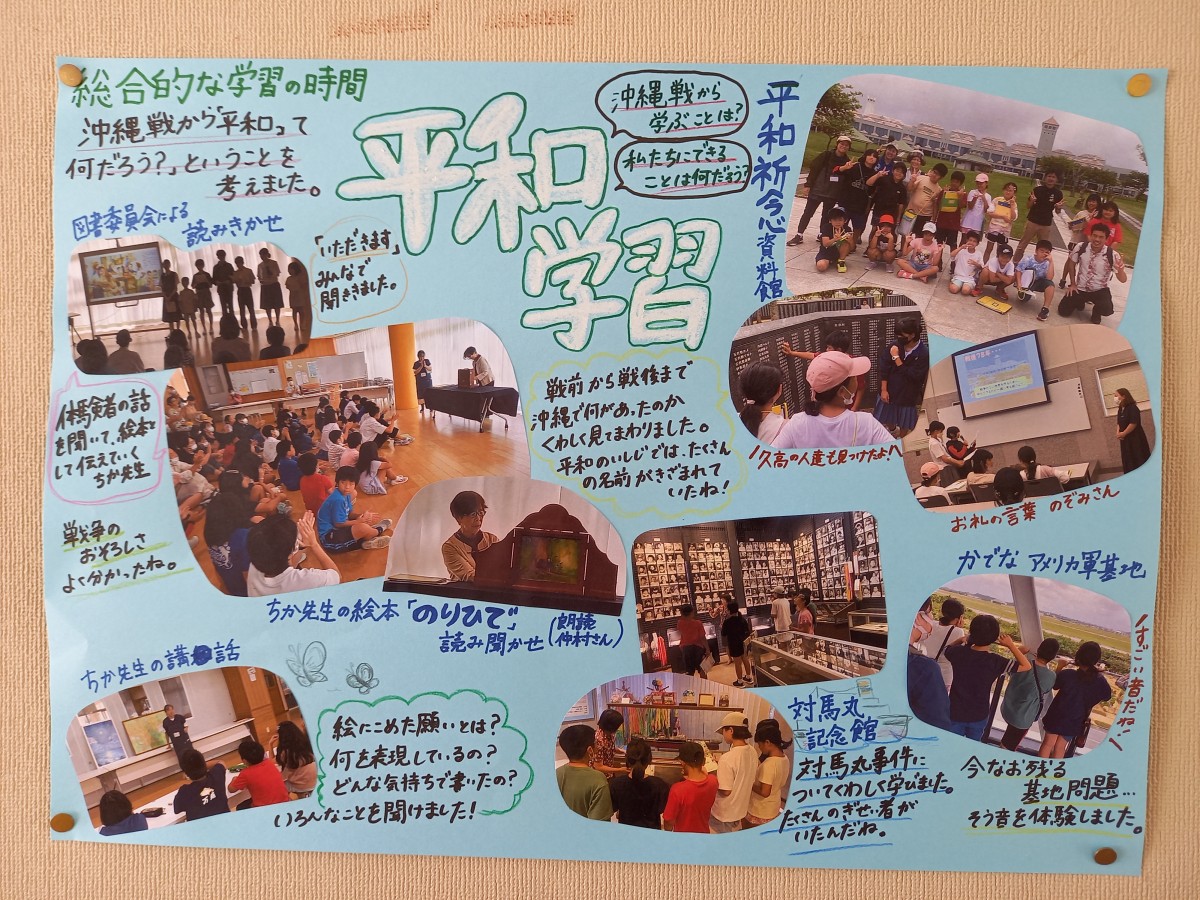 総合的な学習の時間
沖縄戦から「平和」って
何だろう?」ということを
考えました。
平和
学習
沖縄戦から
学ぶことは?
私たちにできる
ことは何だろう?
図書委員会による
読みきかせ
「いただきます」
みんなで
聞ききました。
体験者の話
を聞いて、絵本と
して伝えていく
ちか先生
戦争の
おそろしさ
よく分かったね。
ちか先生の絵本「のりひで」
読み聞かせ
(朗読
仲村さん)
ちか先生の講話
絵にこめた願いとは?
何を表現しているの?
どんな気持ちで書いたの?
いろんなことを聞けました!
平和祈念資料館
戦前から戦後まで
沖縄で何があったのか
くわしく見てまわりました。
平和のいしじでは、たくさん
の名前がきざまれて
いたね!
久高の人達も見つけたよ!
お礼の言葉 のぞみさん
対馬丸
記念館
対馬丸事件に
ついてくわしく学びました。
たくさんのぎせい者が
いたんだね。
かでな アメリカ軍基地
すごい音だね!
今なお残る
基地問題…
そう音を体験しました。